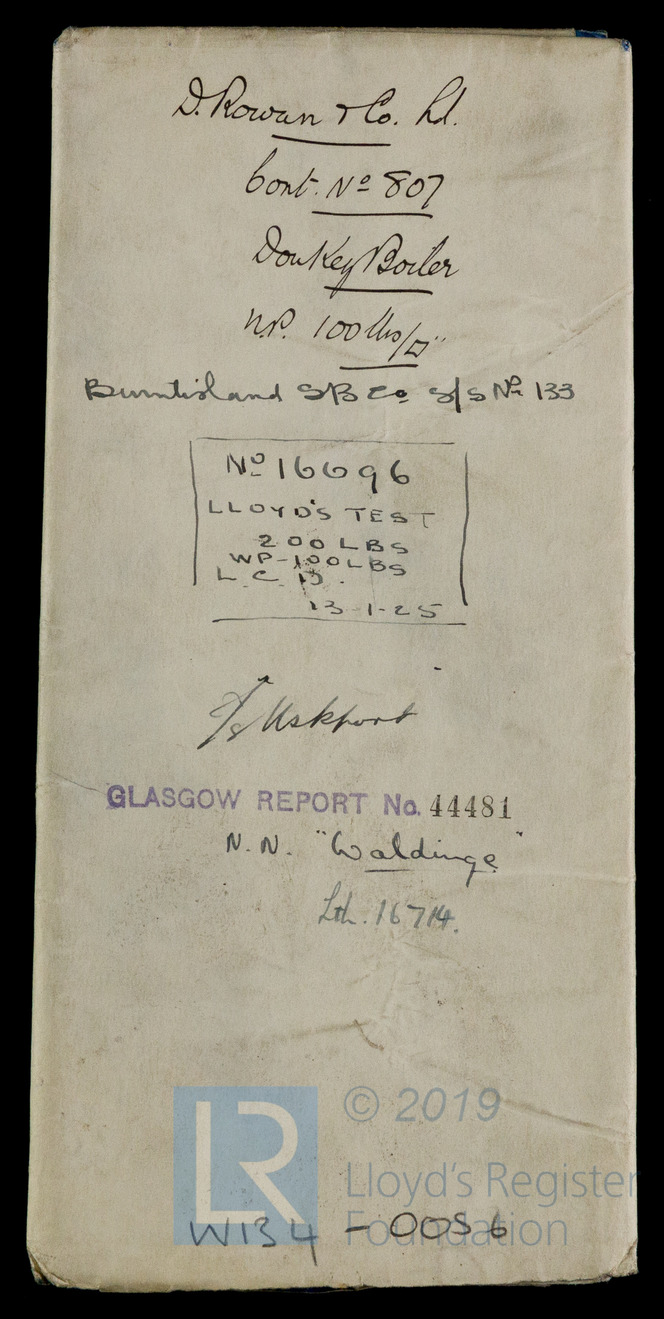 D. Rowan & Co. Ld.
Cont. No 807
Donkey Boiler
W.P. 100 lbs/□"
Burntisland SB Co S/S No 133
No 16696
LLOYD'S TEST
200 LBS
WP-100 LBS
L. C. D.
13-1-25
S/S Uskport
GLASGOW REPORT No. 44481
N.N. "Waldinge"
Lth. 16714.
LR
© 2019
Lloyd's Register
Foundation
W134 - 0056